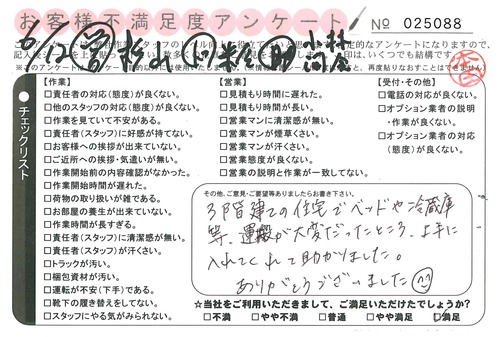 お客様不満足度アンケート
№ 025088
6/12
チェックリスト
【作業】
□責任者の対応(態度)が良くない。
□他のスタッフの対応(態度)が良くない。
□作業を見ていて不安がある。
□責任者(スタッフ)に好感が持てない。
□お客様への挨拶が出来ていない。
□ご近所への挨拶・気遣いが無い。
□作業開始前の内容確認がなかった。
□作業開始時間が遅れた。
□荷物の取り扱いが雑である。
□お部屋の養生が出来ていない。
□作業時間が長すぎる。
□責任者(スタッフ)に清潔感が無い。
□責任者(スタッフ)が汗くさい。
□トラックが汚い。
□梱包資材が汚い。
□運転が不安(下手)である。
□靴下の履き替えをしてない。
□スタッフにやる気がみられない。
【営業】
□見積もり時間に遅れた。
□見積もり時間が長い。
□営業マンに清潔感が無い。
□営業マンが煙草くさい。
□営業マンが汗くさい。
□営業態度が良くない。
□営業の説明と作業が一致してない。
【受付・その他】
□電話の対応が良くない。
□オプション業者の説明
・作業が良くない。
□オプション業者の対応
(態度)が良くない。
その他、ご意見・ご要望等ありましたらお書き下さい。
3階建ての住宅でベッドや冷蔵庫
等、運搬が大変だったところ、上手に
入れてくれて助かりました。
ありがとうございました
☆当社をご利用いただきまして、ご満足いただけたでしょうか?
□不満 □やや不満 □普通 □やや満足 □満足